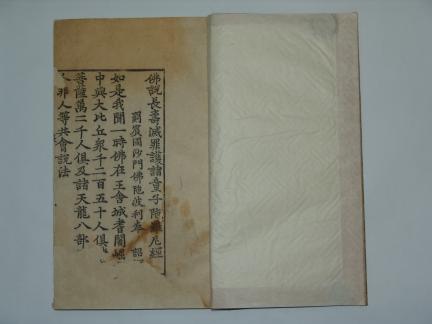 佛說長壽滅罪護諸童子陀羅尼經
罽賓國沙門佛陀波利奉 詔
如是我聞一時佛在王舍城耆闍崛
中與大比丘衆千二百五十人俱
菩薩萬二千人俱及諸天龍八部
人非人等共會說法